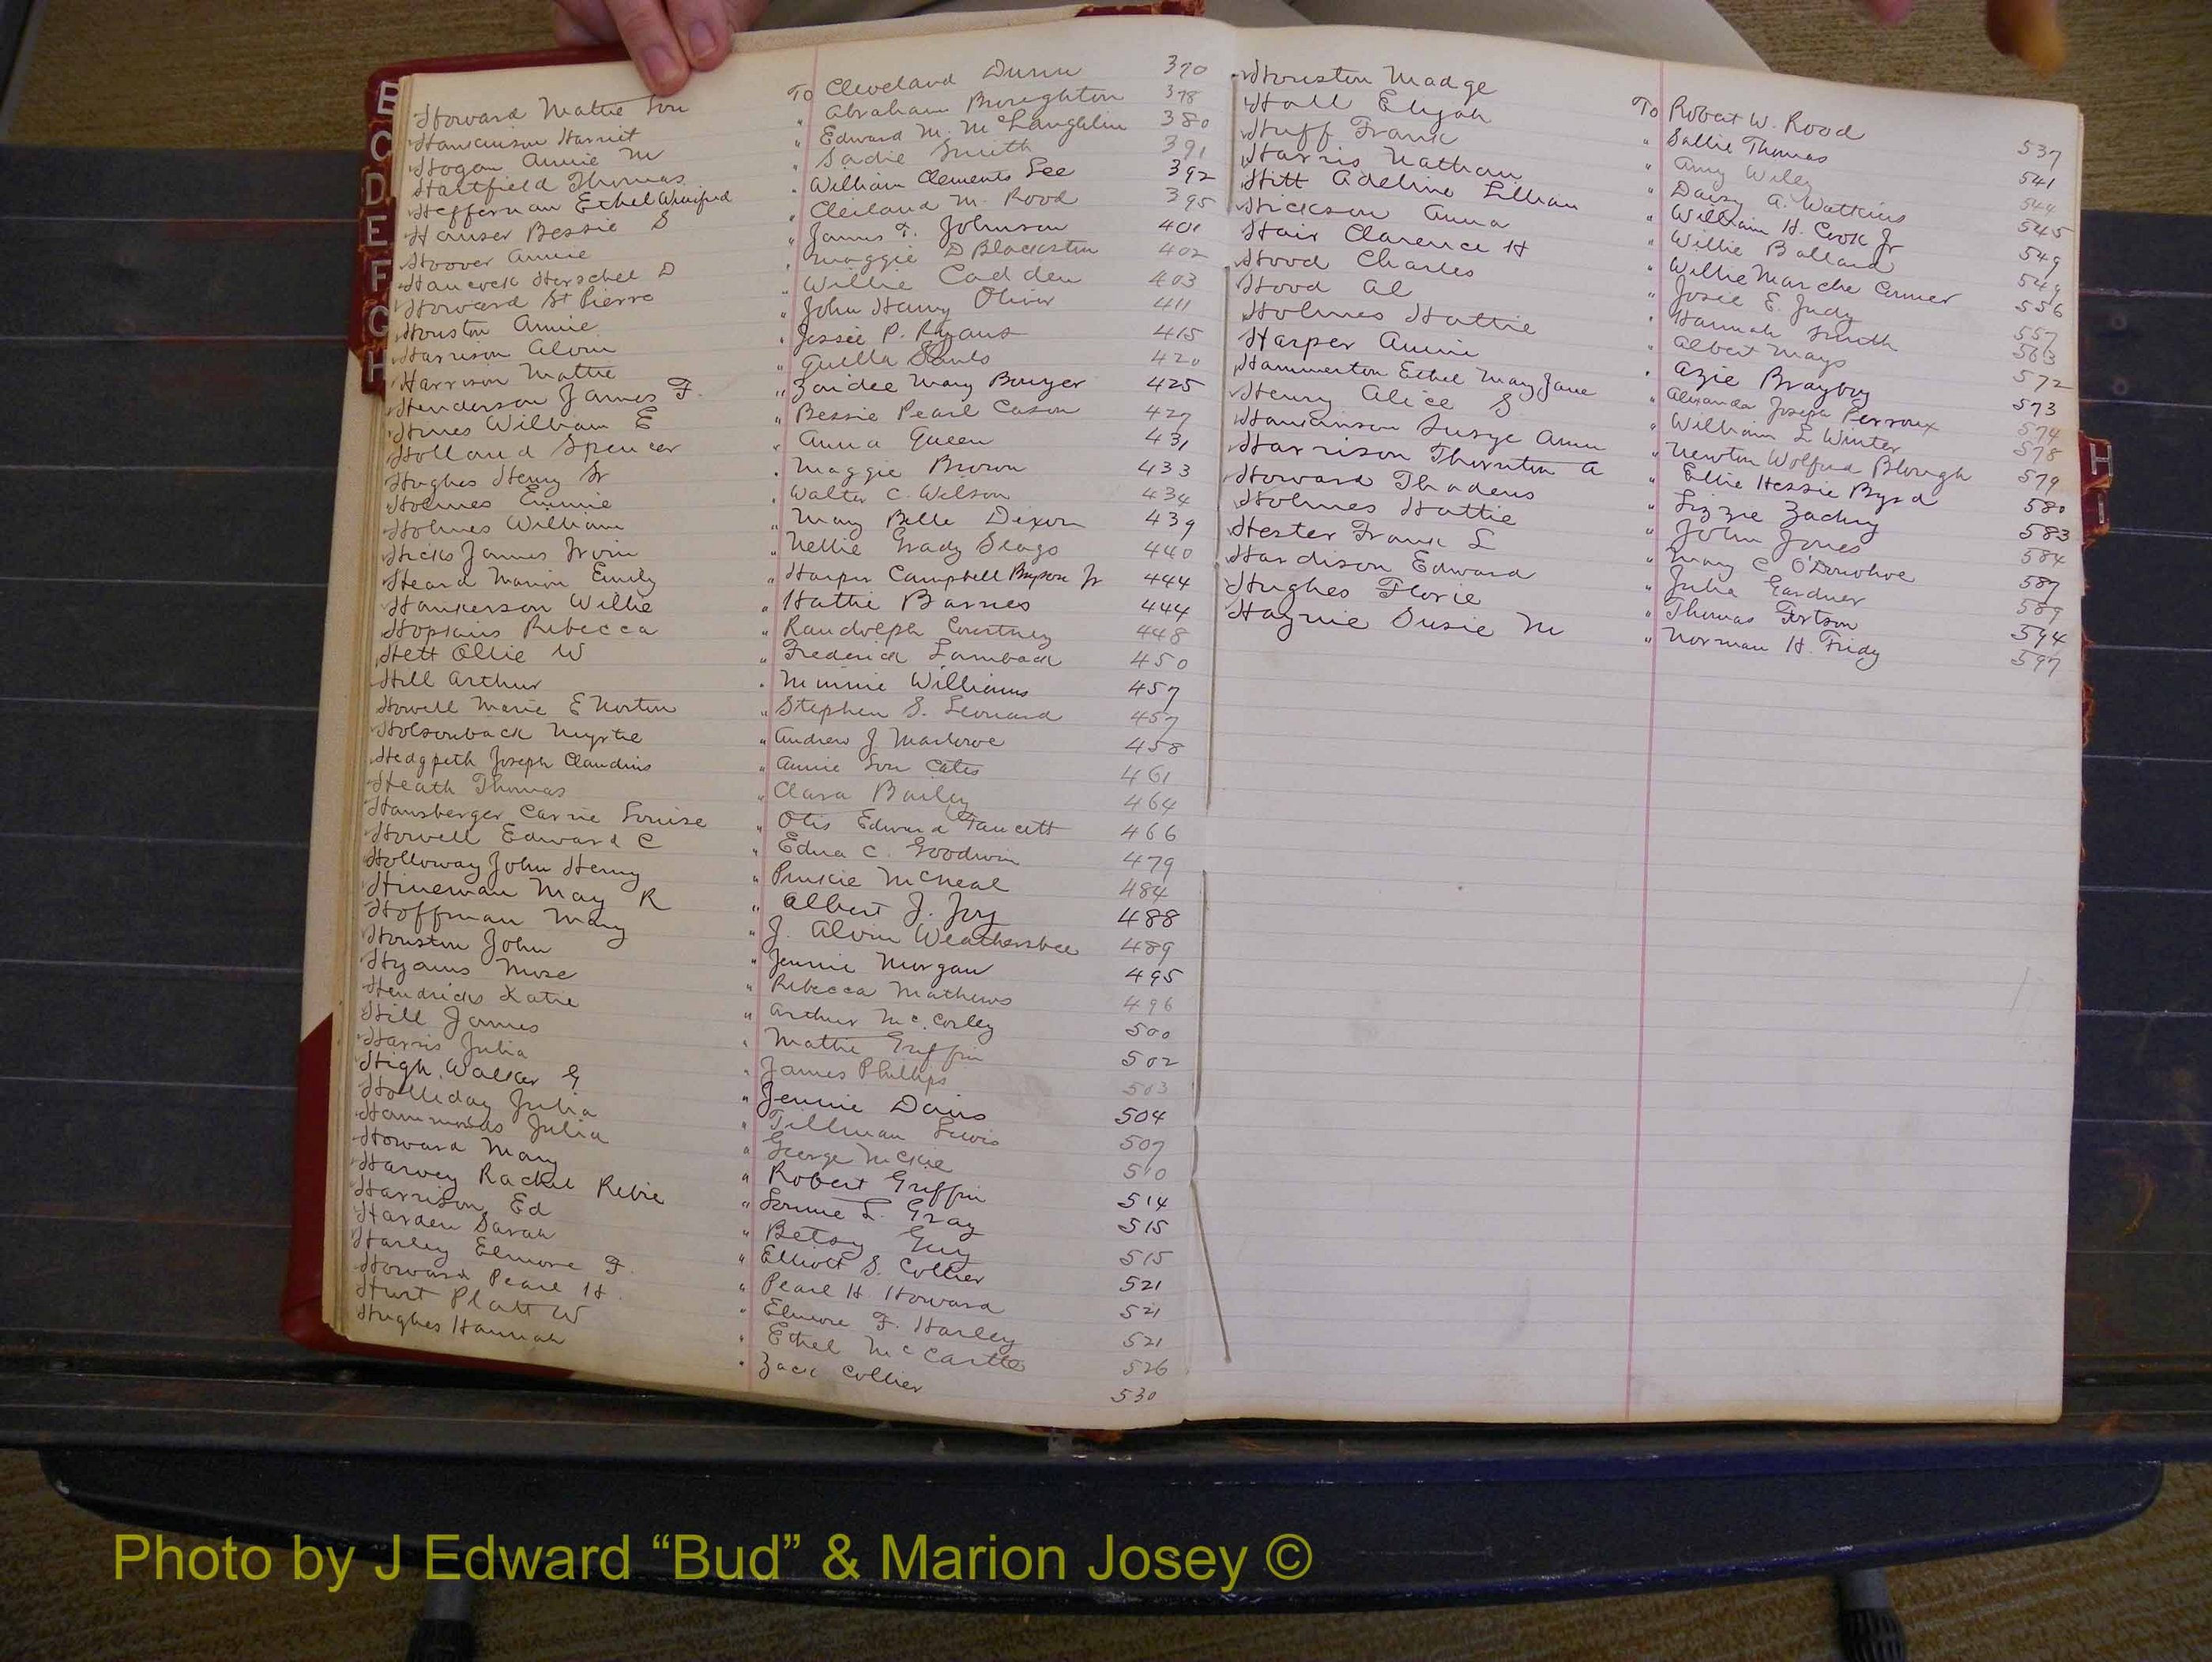 B
C
D
E
F
G
H
Howard Mattie Lou To Cleveland Dunn 370
Hankinson Harriet " Abraham Broughton 378
Hogan Annie M " Edward M. McLaughlin 380
Hartfield Thomas " Sadie Smith 391
Heffernan Ethel Winifred " William Clements Lee 392
Hauser Bessie S " Cleiland M. Rood 395
Hoover Annie " James F. Johnson 401
Hancock Herschel D " Maggie D Blackston 402
Howard St Pierre " Willie Cadden 403
Houston Annie " John Henry Oliver 411
Harrison Alvin " Jessie P. Ryans 415
Harrison Mattie " Quilla Sauls 420
Henderson James F. " Zaidee Mary Bouyer 425
Hines William E " Bessie Pearl Cason 427
Holland Spencer " Anna Queen 431
Hughes Henry Sr " Maggie Brown 433
Holmes Emmie " Walter C. Wilson 434
Holmes William " Mary Belle Dixon 439
Hicks James Irvin " Nellie Grady Seago 440
Heard Marion Emily " Harper Campbell Bryson Jr 444
Hankerson Willie " Hattie Barnes 444
Hopkins Rebecca " Randolph Courtney 448
Hett Ollie W " Frederick Lamback 450
Hill Arthur " Minnie Williams 457
Howell Marie E Norton " Stephen S. Leonard 457
Holsonback Myrtie " Andrew J Marlowe 458
Hedgpeth Joseph Claudius " Annie Lou Cates 461
Heath Thomas " Clara Bailey 464
Hansberger Carrie Louise " Otis Edward Faucett 466
Howell Edward C " Edna C. Goodwin 479
Holloway John Henry " Pinkie McNeal 484
Hineman May R " Albert J. Joy 488
Hoffman Mary " J. Alvin Weathersbee 489
Houston John " Jennie Morgan 495
Hyams Mose " Rebecca Mathews 496
Hendricks Katie " Arthur Mc.Corley 500
Hill James " Mattie Griffin 502
Harris Julia " James Phillips 503
High Walker G " Jennie Davis 504
Holliday Julia " Tillman Lewis 507
Hammonds Julia " George McKie 510
Howard Mary " Robert Griffin 514
Harvey Rachel Rebie " Lonnie L. Gray 515
Harrison Ed " Betsy Guy 515
Harden Sarah " Elliott S. Collier 521
Harley Elmore F. " Pearl H. Howard 521
Howard Pearl H. " Elmore F. Harley 521
Hurt Platt W " Ethel McCarthy 526
Hughes Hannah " Zack Collier 530
Houston Madge To Robert W. Rood 537
Hall Elijah " Sallie Thomas 541
Huff Frank " Amy Wiley 544
Harris Nathan " Daisy A. Watkins 545
Hitt Adeline Lillian " William H. Cook Jr 549
Hickson Anna " Willie Ballard 549
Hair Clarence H " Willie Marche Conner 556
Hood Charles " Josie E. Judy 557
Hood Al " Hannah Smith 563
Holmes Hattie " Albert Mays 572
Harper Annie " Azie Brayboy 573
Hammerton Ethel May Jane " Alexander Joseph Perroux 574
Henry Alice S " William L Winter 578
Hankinson Susye Ann " Newton Wolford Blough 579
Harrison Thornton A " Ellie Hessie Byrd 580
Howard Thadeus " Lizzie Zachry 583
Holmes Hattie " John Jones 584
Hester Frank L " Mary C O'Donohoe 587
Hardison Edward " Julia Gardner 589
Hughes Florie " Thomas Fortson 594
Haynie Susie M " Norman H. Fridy 597
H
I
Photo by J Edward “Bud” & Marion Josey ©